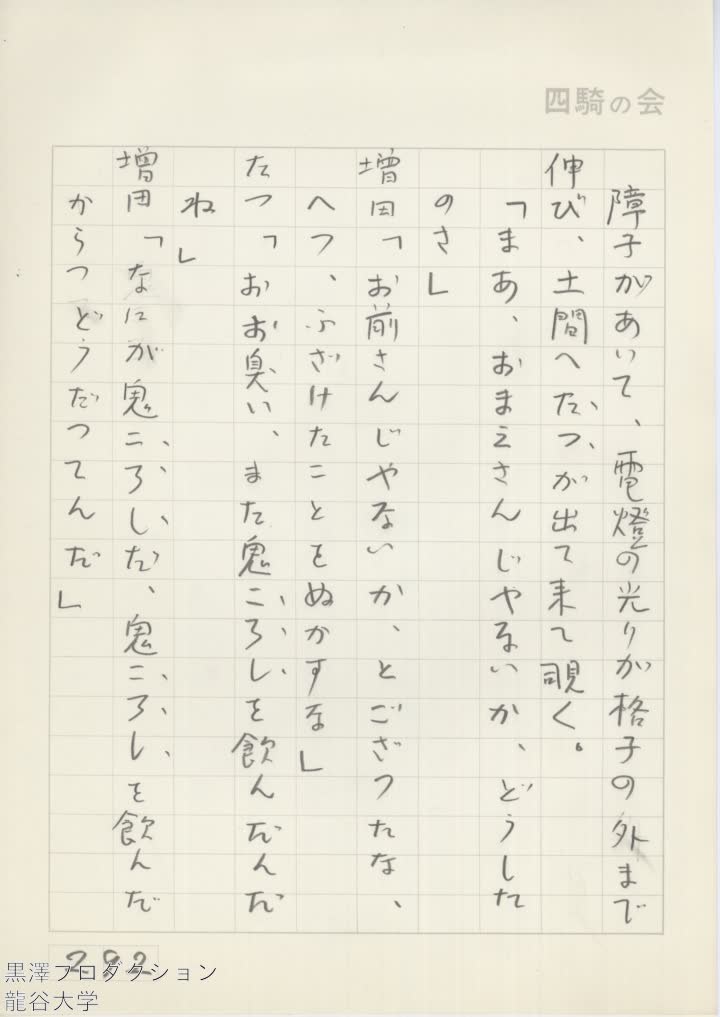 四騎の会
障子があいて、電燈の光りが格子の外まで
伸び、土間へたつが出て来て覗く。
「まあ、おまえさんじやないか、どうした
のさ」
増田「お前さんじやないか、とござつたな、
へつ、ふざけたことをぬかすな」
たつ「おお臭い、また鬼ころしを飲んだんだ
ね」
増田「なにが鬼ころしだ、鬼ころしを飲んだ
からつどうだつてんだ」
282
黒澤プロダクション
龍谷大学